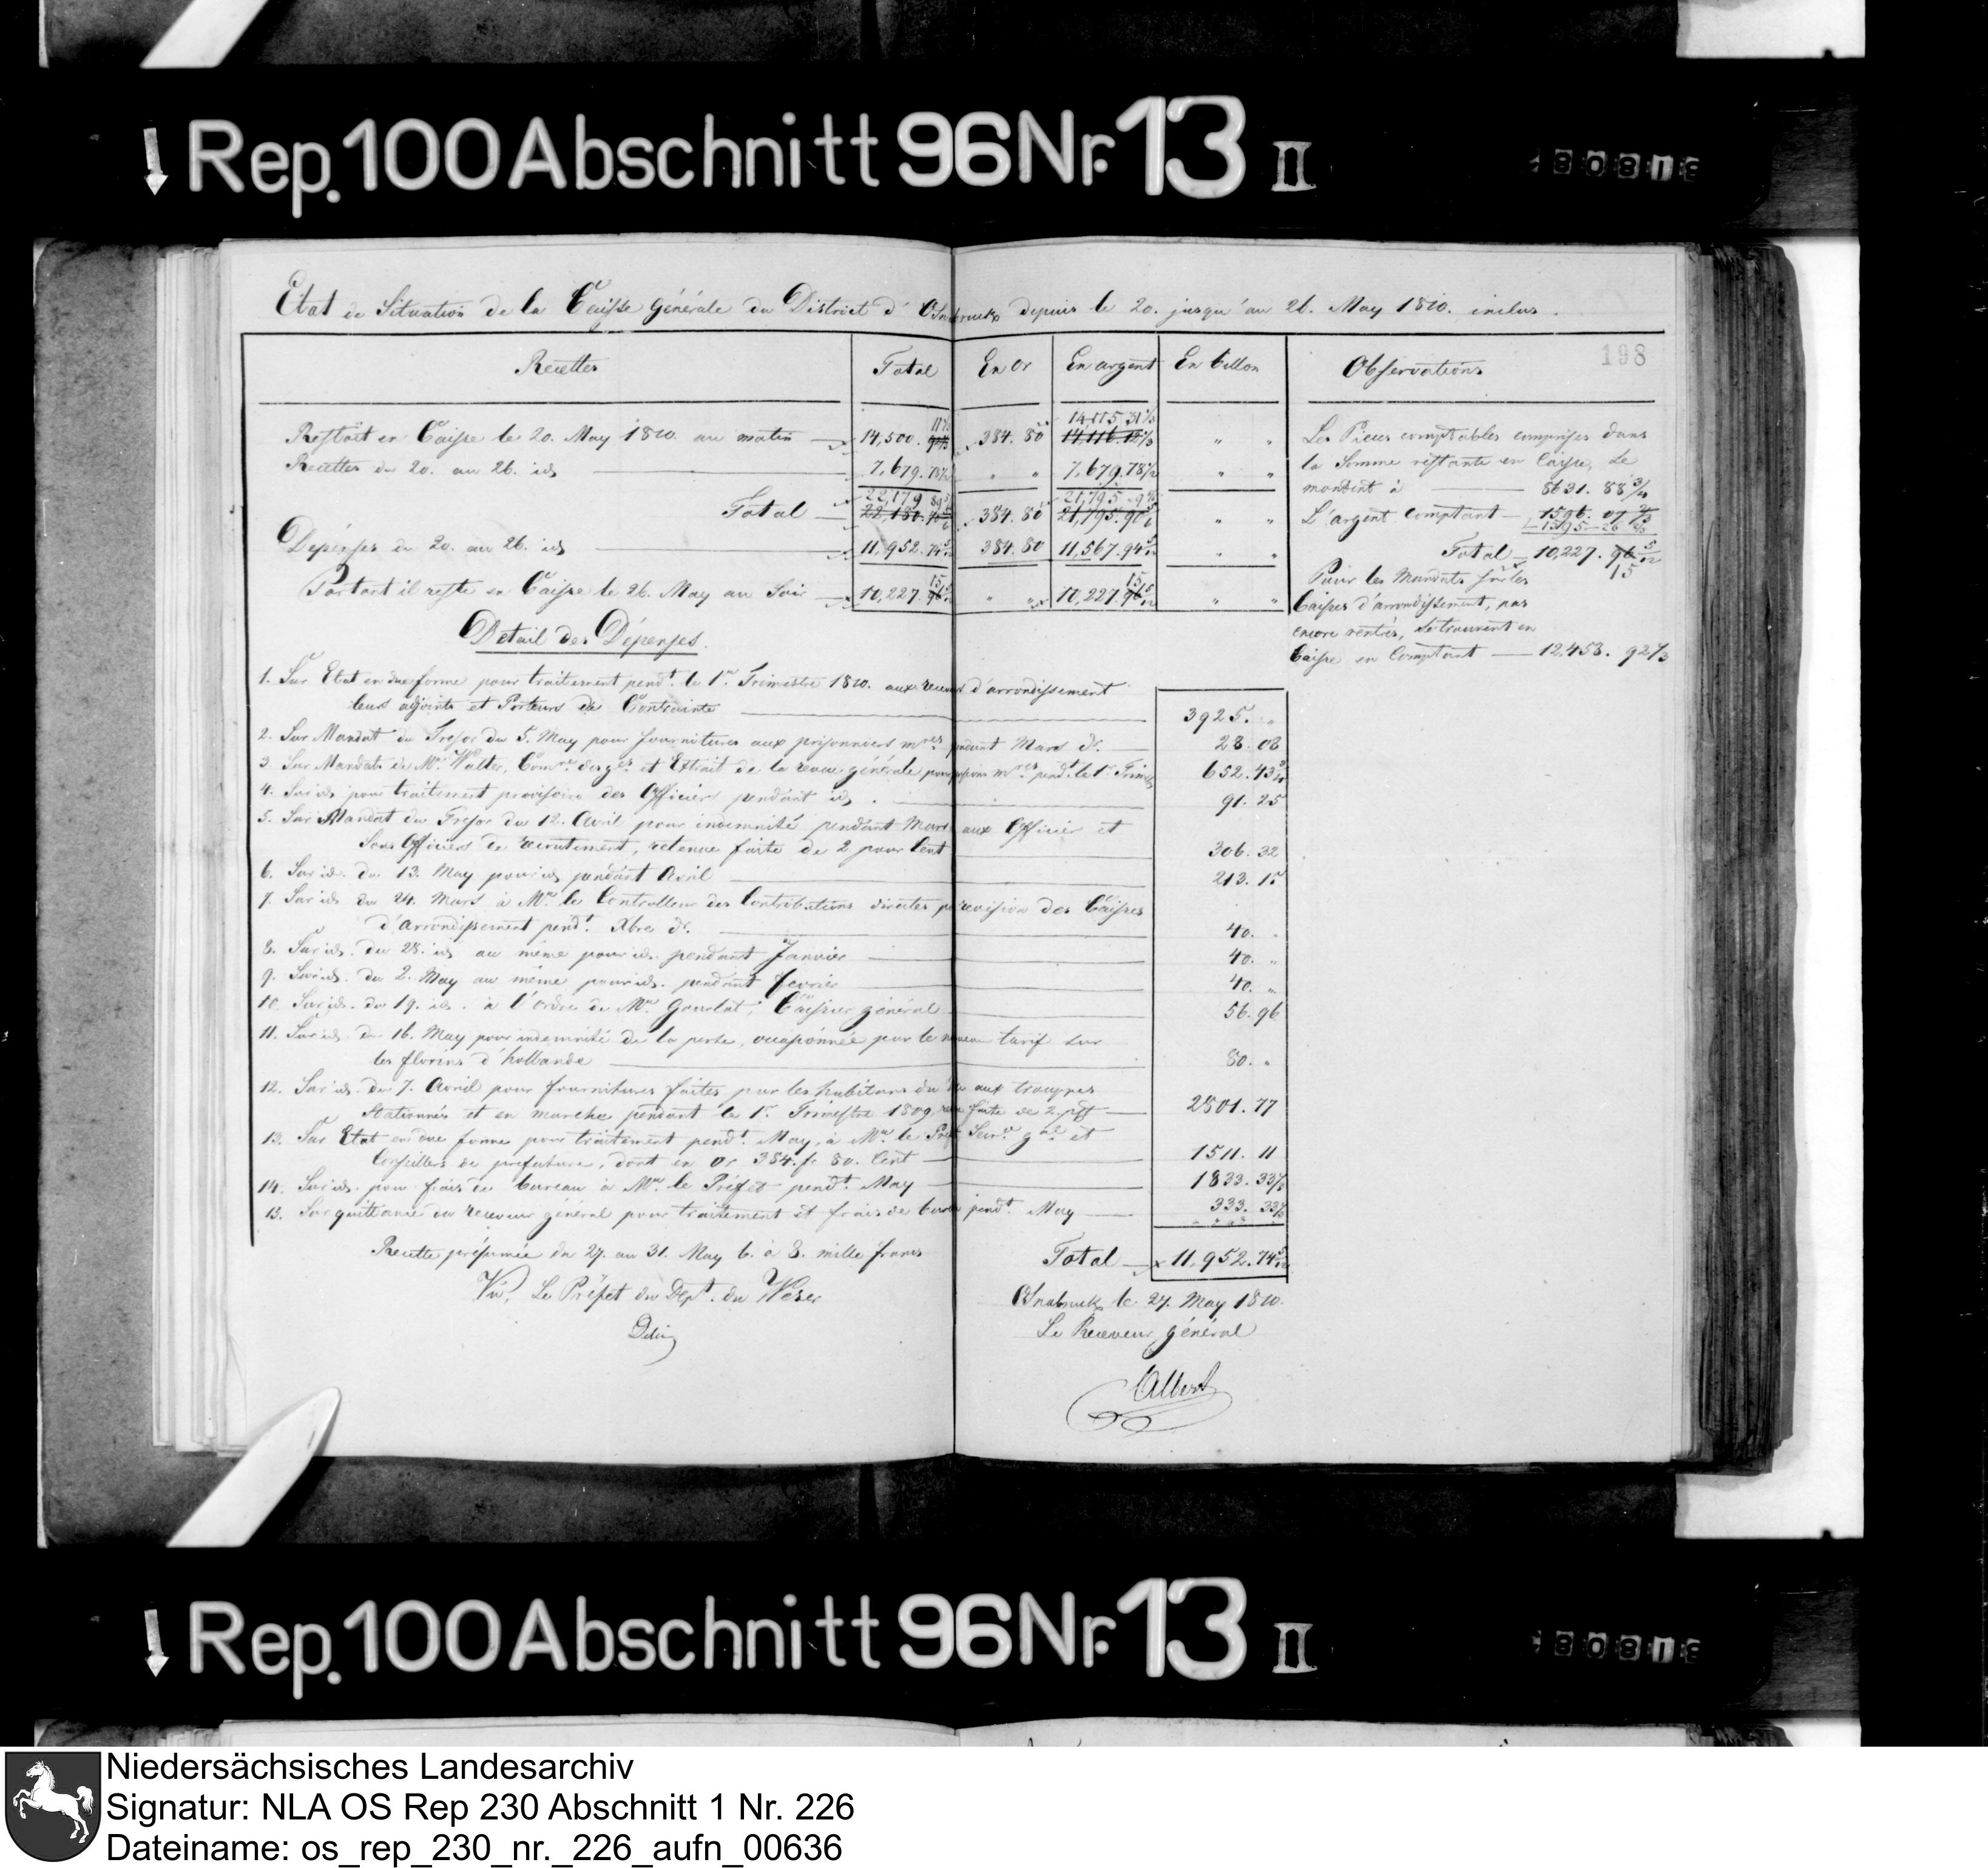 Rep. 100 Abschnitt 96 Nr. 13 II
Etat de Situation de la Caisse générale du District d'Osnabruck depuis le 20. jusqu'au 26. May 1810. inclus.
198
Recettes Total En or En argent En billon Observations
14,115 31⅓
Restoit en Caisse le 20. May 1810. au matin 14,500. 384. 80 14,116. 12⅓ " "
Recettes du 20. au 26. id. 7,679. 78½ " " 7,679. 78½ " "
22,179 21,795
Total 22,180. 384. 80 21,795. 90 " "
Dépenses du 20. au 26. id. 11,952. 74 5/12 384. 80 11,567. 94 5/12 " "
15 15
Partant il reste en Caisse le 26. May au Soir 10,227. 96 5/12 " " 10,227. 96 5/12 " "
Les Pieces comptables comprises dans
la Somme restante en Caisse, se
montent à 8631. 88 ¾
L'argent comptant 1596. 07 ⅔
1595 - 26
Total 10,227. 96 5/12
15
Pour les Mandats sur les
Caisses d'arrondissement, pas
encore rentrés, se trouvent en
Caisse en Comptant 12,453. 92⅓
Detail des Dépenses.
1. Sur Etat en due forme pour traitement pend.t le 1.er Trimestre 1810. aux receveurs d'arrondissement
leurs adjoints et Porteurs de Contrainte 3925. "
2. Sur Mandat du Tresor du 5. May pour fournitures aux prisonniers m.res pendant Mars d.r 28. 08
3. Sur Mandats de M.r Walter, Com.re des g.es et Extrait de la revue générale pour pensions m.res pend.t le 1.r Trimes 652. 43
4. Sur id. pour traitement provisoire des Officiers pendant id. 91. 25
5. Sur Mandat du Tresor du 12. Avril pour indemnité pendant Mars aux Officier et
Sous Officiers de recrutement, retenue faite de 2 pour Cent 306. 32
6. Sur id. du 13. May pour id. pendant Avril 213. 15
7. Sur id. du 24. Mars à M.r le Controlleur des Contributions directes pr revision des Caisses
d'arrondissement pend.t Xbre d.r 40. "
8. Sur id. du 28. id. au même pour id. pendant Janvier 40. "
9. Sur id. du 2. May au même pour id. pendant fevrier 40. "
10. Sur id. du 19. id. à l'ordre de M.r Caissier général 56. 96
11. Sur id. du 16. May pour indemnité de la perte, occasionnée par le nouveau tarif sur
les florins d'hollande 80. "
12. Sur id. du 7. Avril pour fournitures faites par les habitans du aux trouppes
Stationnés et en marche pendant le 1.r Trimestre 1809 faite de 2. pff 2801. 77
13. Sur Etat en due forme pour traitement pend.t May, à M.r le Préfet Secr.e g.al et
Conseillers de prefecture, dont en or 384. fr 80. Cent 1511. 11
14. Sur id. pour frais de bureau à M.r le Préfet pend.t May 1833. 33⅓
15. Sur quittance du receveur général pour traitement et frais de bureau pend.t May 333. 33⅓
Recette présumée du 27. au 31. May 6. à 8. mille francs
Total 11,952. 74 5/12
Vu, Le Préfet du Dep.t du Weser
Osnabruck, le 27. May 1810.
Le Receveur général
Delius
Albert
Rep. 100 Abschnitt 96 Nr. 13 II
Niedersächsisches Landesarchiv
Signatur: NLA OS Rep 230 Abschnitt 1 Nr. 226
Dateiname: os_rep_230_nr._226_aufn_00636